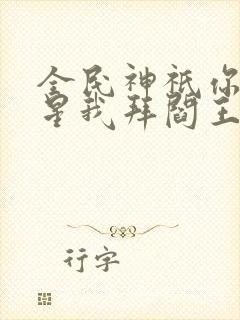 全民神祇你
星我拜阎王
行字